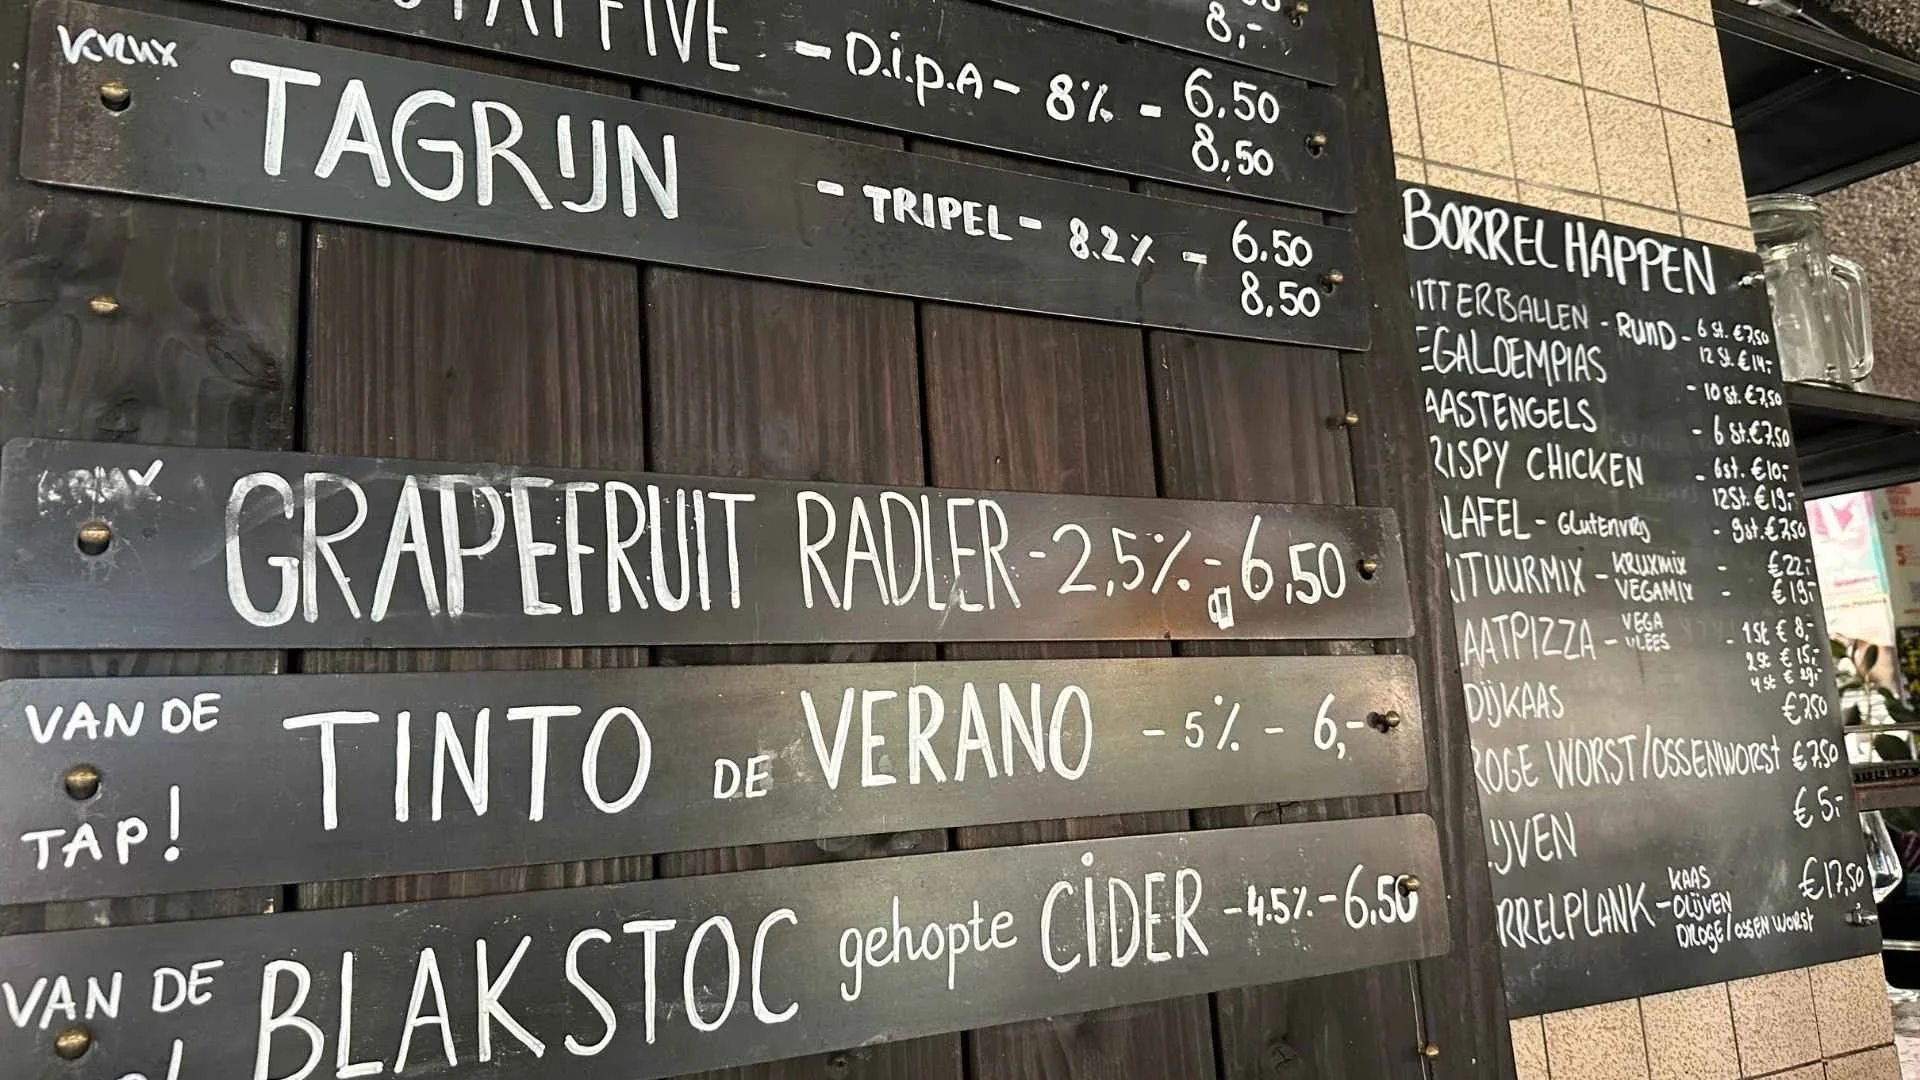 8,-
FIVE - D.i.p.A - 8% - 6.50
8,50
KRUX TAGRIJN - TRIPEL - 8.2% - 6.50
8,50
GRAPEFRUIT RADLER - 2,5% - 6,50
VAN DE TAP! TINTO DE VERANO - 5% - 6,-
VAN DE BLAKSTOC gehopte CIDER - 4.5% - 6.50
BORREL HAPPEN
ITTERBALLEN - RUND - 6 St. €7,50
12 St. €14,-
EGALOEMPIAS - 10 St. €7,50
AASTENGELS - 6 St. €7,50
RISPY CHICKEN - 6st. €10,-
12St. €19,-
LAFEL - Glutenvrij - 9st. €7,50
ITUURMIX - KRUXMIX - €22,-
VEGAMIX - €19,-
AATPIZZA - VEGA VLEES - 1St € 8,-
2st € 15,-
4st € 29,-
DIJKAAS €7,50
ROGE WORST/OSSENWORST €7,50
IJVEN € 5,-
RRELPLANK - KAAS €17,50
OLIJVEN
DROGE/OSSEN WORST